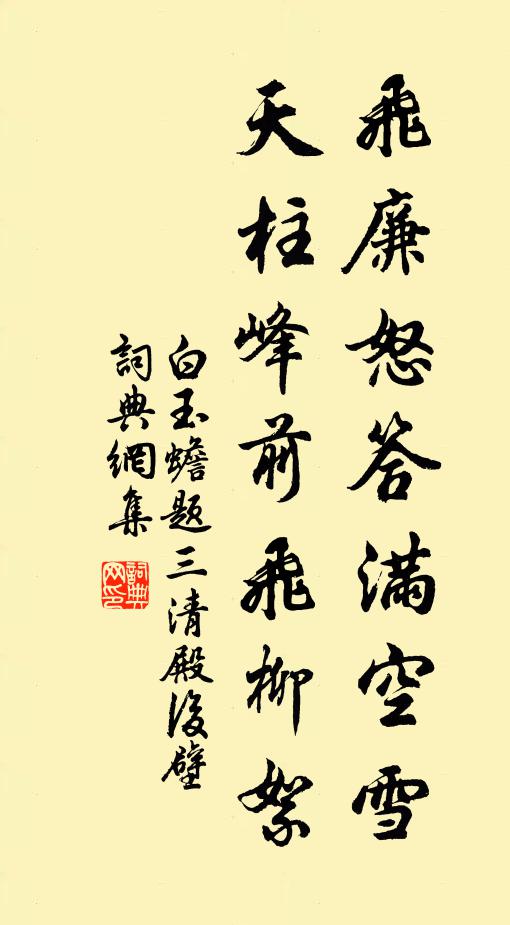 飛廉怒答滿空雪
天柱峰前飛柳絮
白玉蟾題三清殿後壁
詞典網集
詞典
网印